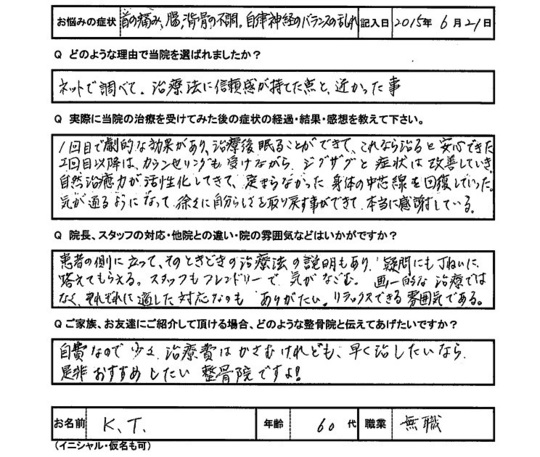 お悩みの症状 首の痛み、脳、背骨の不調、自律神経のバランスの乱れ 記入日 2015年 6月21日
Q どのような理由で当院を選ばれましたか？
ネットで調べて、治療法に信頼感が持てた点と、近かった事
Q 実際に当院の治療を受けてみた後の症状の経過・結果・感想を教えて下さい。
1回目で劇的な効果があり、治療後眠ることができて、これなら治ると安心できた
2回目以降は、カウンセリングも受けながら、ジグザグと症状は改善していき
自然治癒力が活性化してきて、定まらなかった身体の中芯線を回復していった。
気が通るようになって、徐々に自分らしさを取り戻す事ができて、本当に感謝している。
Q 院長、スタッフの対応・他院との違い・院の雰囲気などはいかがですか？
患者の側に立って、そのときどきの治療法の説明もあり、疑問にも丁ねいに
答えてもらえる。スタッフもフレンドリーで、気がなごむ。画一的な治療では
なく、それぞれに適した対応なのも ありがたい。リラックスできる雰囲気である。
Q ご家族、お友達にご紹介して頂ける場合、どのような整骨院と伝えてあげたいですか？
自費なので少々、治療費はかさむけれども、早く治したいなら
是非おすすめしたい 整骨院ですよ!
お名前 K.T. 年齢 60代 職業 無職
(イニシャル・仮名も可)